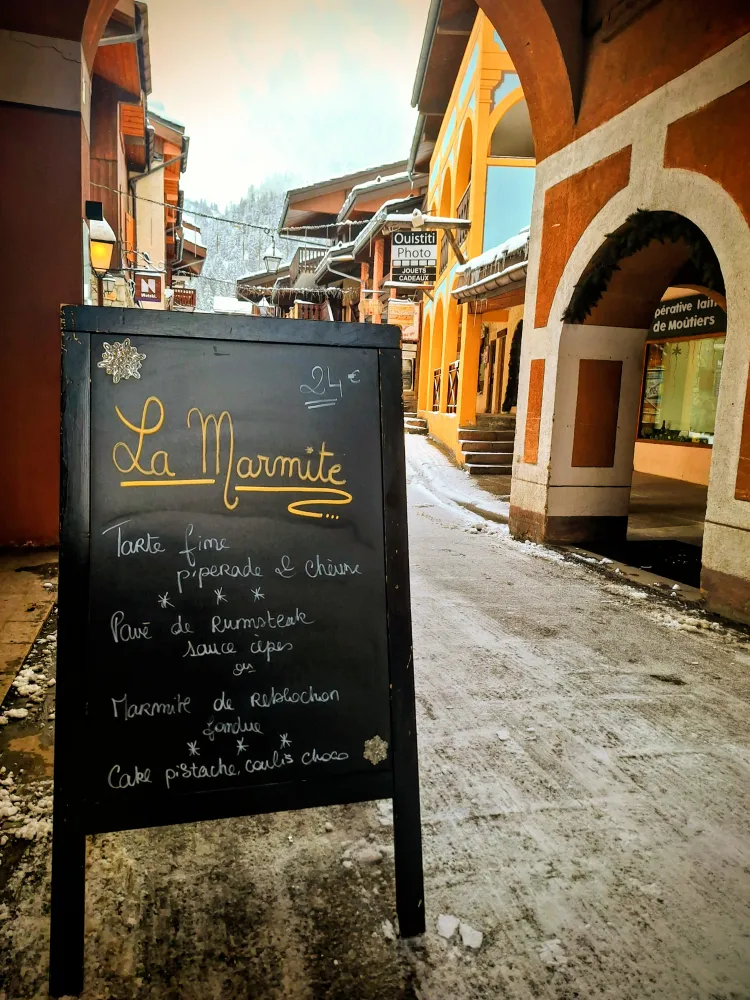 Ouistiti
Photo
JOUETS
CADEAUX
pérative lait
de Moûtiers
N
24€
La Marmite
Tarte fine
piperade & chèvre
Pavé de Rumsteak
sauce cèpes
ou
Marmite de Reblochon
fondue
Cake pistache, coulis choco